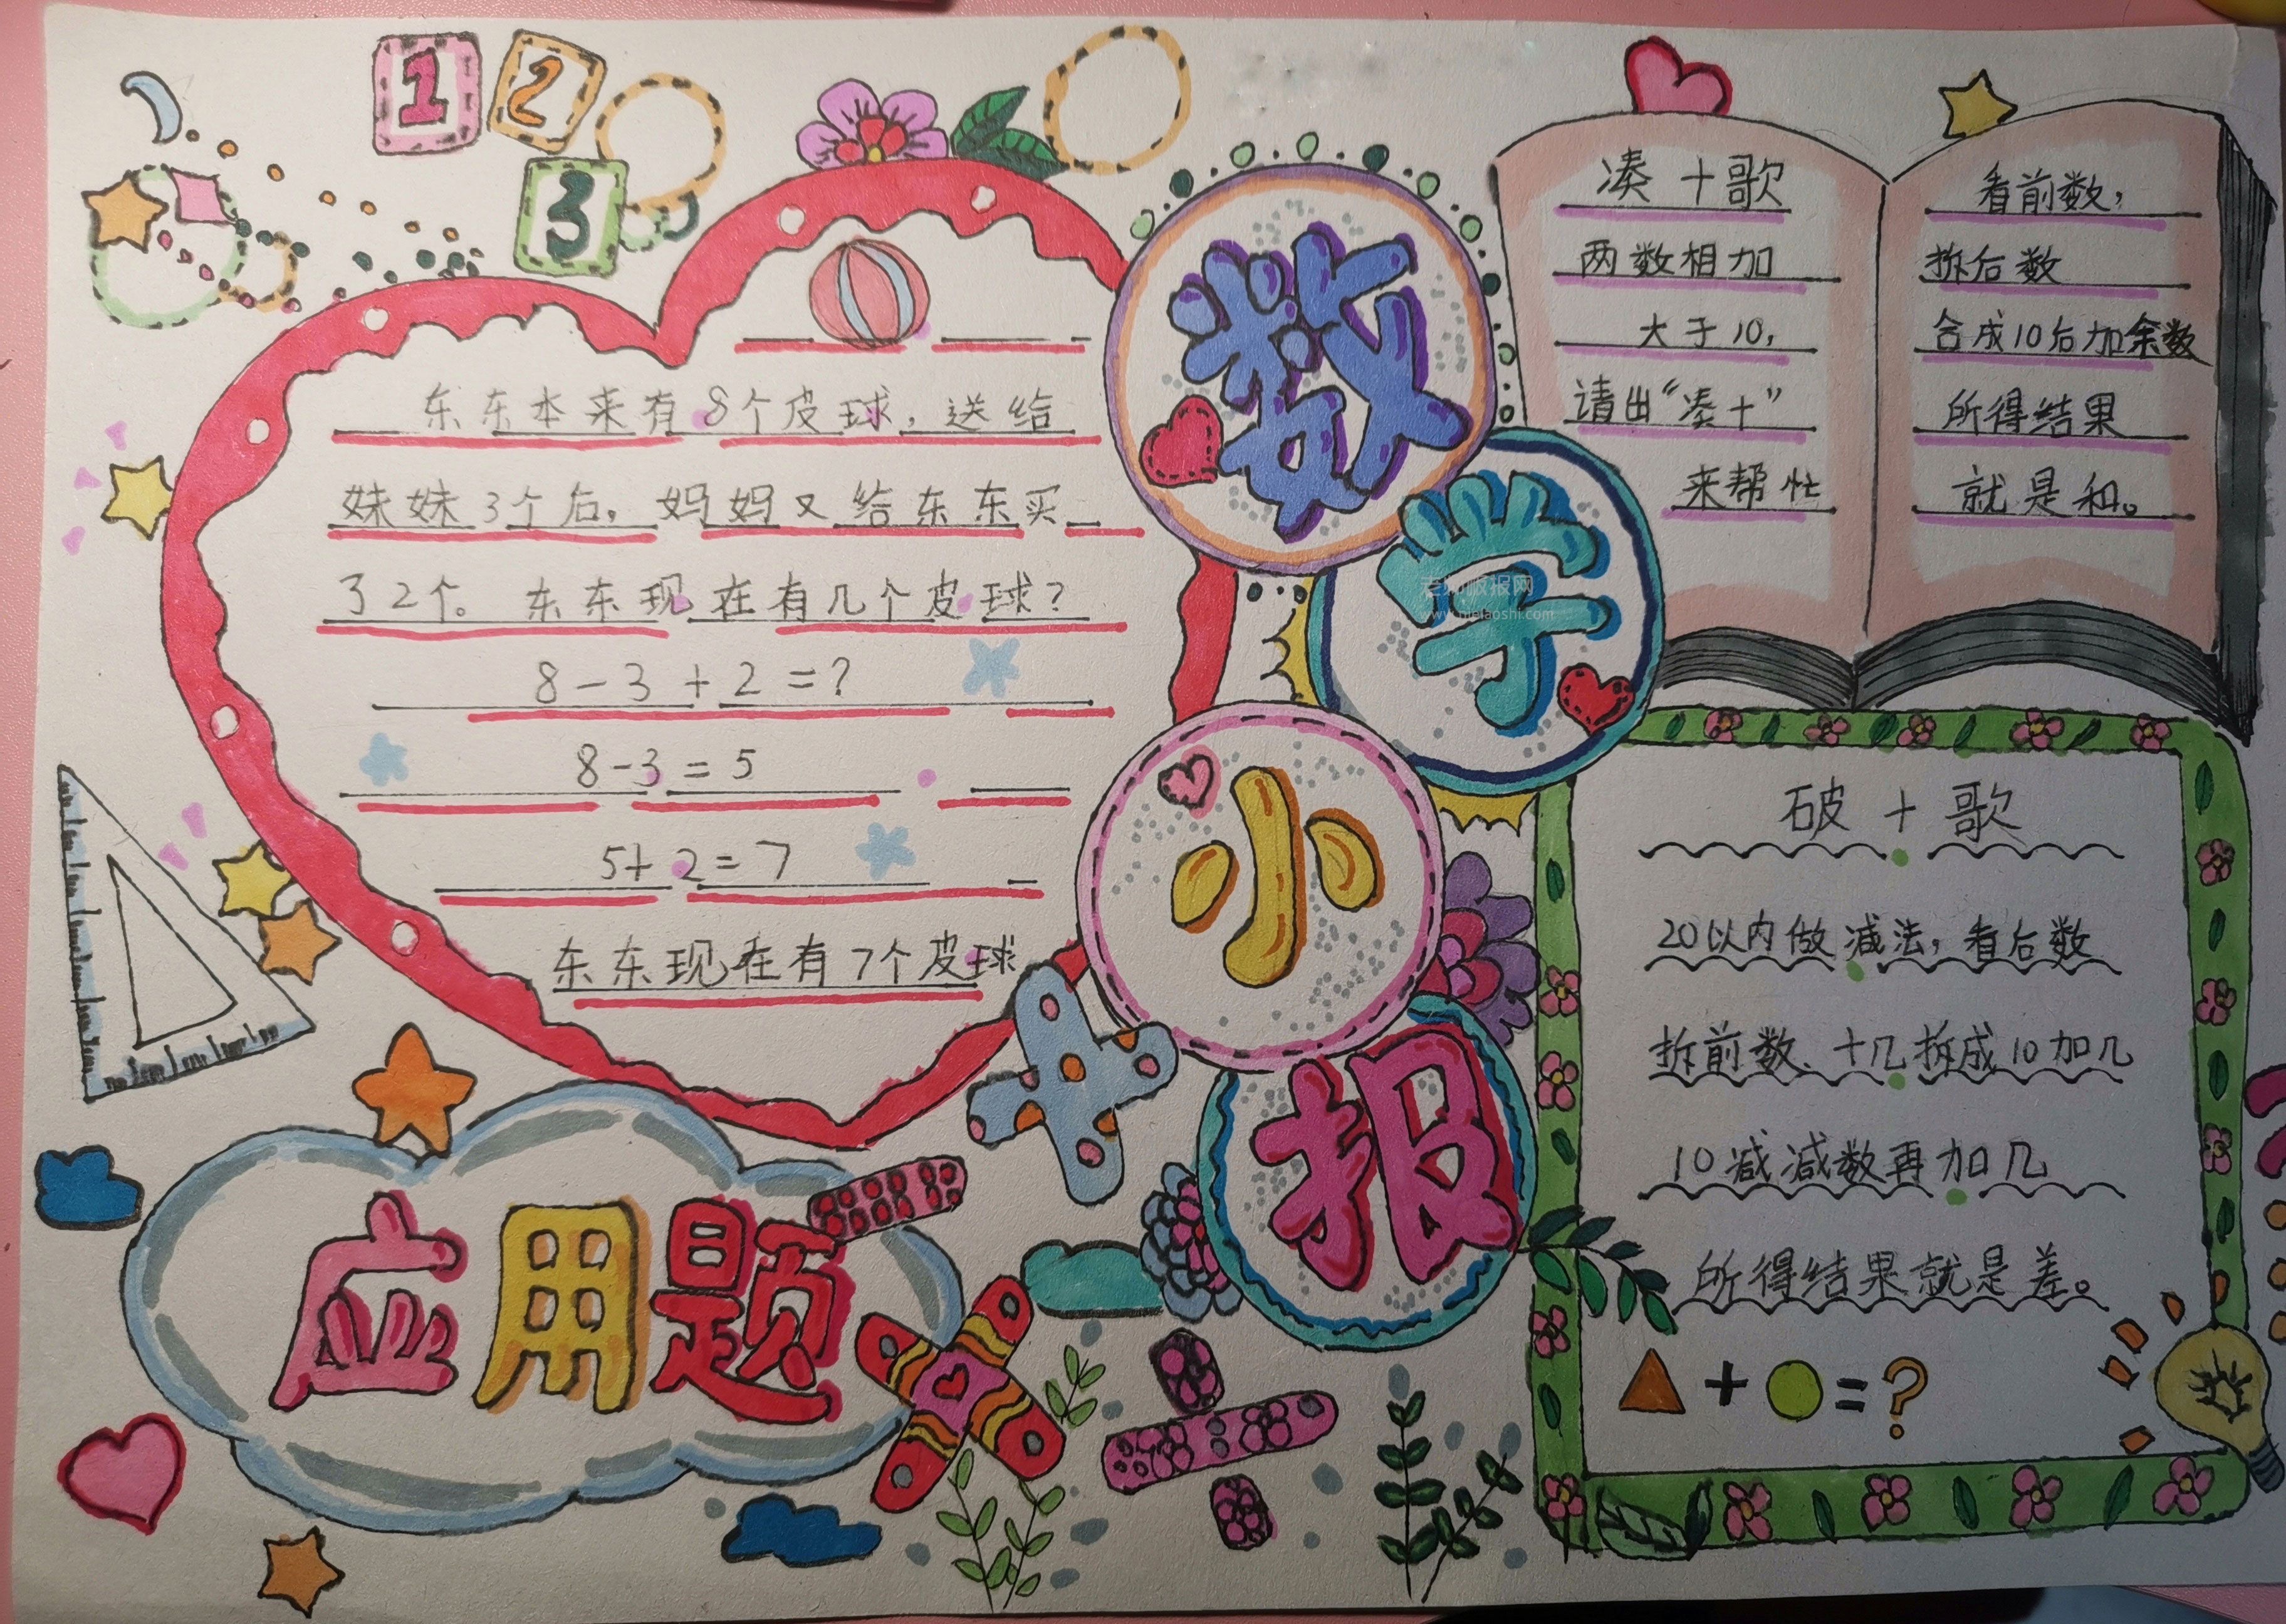 1 2
3
数
学
小
报
东东本来有8个皮球，送给
妹妹3个后，妈妈又给东东买
了2个。东东现在有几个皮球？
8-3+2=?
8-3=5
5+2=7
东东现在有7个皮球
应用题
凑十歌
两数相加
大于10，
请出“凑十”
来帮忙
看前数，
拆后数
合成10后加余数
所得结果
就是和。
破十歌
20以内做减法，看后数
拆前数、十几拆成10加几
10减减数再加几
所得结果就是差。
+ = ?
老师板报网
www.meilaoshi.com